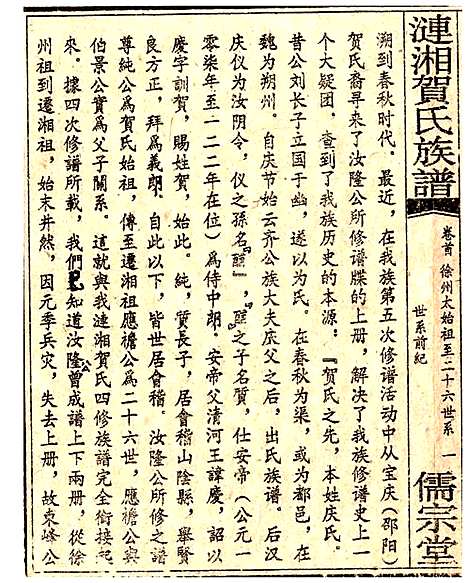 漣湘賀氏族譜
卷首 徐州太始祖至二十六世系 一
世系前紀
儒宗堂
溯到春秋时代。最近，在我族第五次修谱活动中从宝庆（邵阳）
贺氏裔寻来了汝隆公所修谱牒的上册，解决了我族修谱史上一
个大疑团，查到了我族历史的本源：『贺氏之先，本姓庆氏。
昔公刘长子立国于幽，遂以为氏。在春秋为渠，或为都邑，在
魏为朔州。自庆节始云齐公族大夫庆父之后，出氏族谱。后汉
庆仪为汝阴令，仪之孫名『　』，『　』之子名質，仕安帝（公元一
零柒年至一二二年在位）爲侍中郎．安帝父清河王諱慶，詔以
慶字訓賀，賜姓賀，始此。純，質長子，居會稽山陰縣，舉賢
良方正，拜爲義郎，自此以下，皆世居會稽。汝隆公所修之譜
尊純公爲賀氏始祖，傳至遷湘祖應襜公爲二十六世，應襜公奕
伯景公實爲父子關系。這就與我漣湘賀氏四修族譜完全銜接起
來。據四次修譜所載，我們已知道汝隆公曾成譜上下兩册，從徐
州祖到遷湘祖，始末井然，因元季兵灾，失去上册，故東峰公